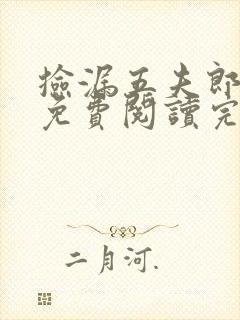 撿漏五夫郎
免費閱讀完
二月河.